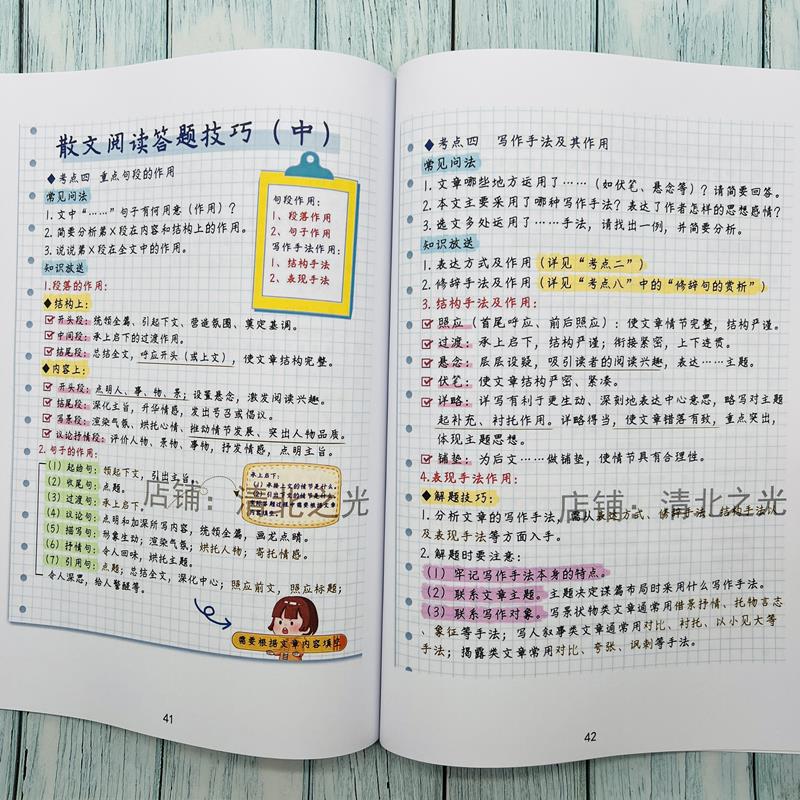 散文阅读答题技巧（中）
◆考点四 重点句段的作用
常见问法
1. 文中“……”句子有何用意（作用）？
2. 简要分析第X段在内容和结构上的作用。
3. 说说第X段在全文中的作用。
知识放送
1.段落的作用：
◆结构上：
开头段：统领全篇、引起下文、营造氛围、奠定基调。
中间段：承上启下的过渡作用。
结尾段：总结全文，呼应开头（或上文），使文章结构完整。
◆内容上：
开头段：点明人、事、物、景；设置悬念，激发阅读兴趣。
结尾段：深化主旨，升华情感，发出号召或倡议。
写景段：渲染气氛、烘托心情、推动情节发展、突出人物品质。
议论抒情段：评价人物、景物、事物，抒发情感，点明主旨。
2.句子的作用：
(1) 起始句：领起下文，引出主旨。
(2) 收尾句：点题。
(3) 过渡句：承上启下。
(4) 议论句：点明和加深所写内容，统领全篇，画龙点睛。
(5) 描写句：形象生动；渲染气氛；烘托人物；寄托情感。
(6) 抒情句：令人回味，烘托主题。
(7) 引用句：点题；总结全文，深化中心；照应前文，照应标题；
令人深思，给人警醒等。
句段作用：
1、段落作用
2、句子作用
写作手法作用：
1、结构手法
2、表现手法
承上启下：
(1) 承接上文的情节是什么。
(2) 引出下文的情节是什么。
需要根据文章内容填写
店铺：清北之光
41
◆考点四 写作手法及其作用
常见问法
1. 文章哪些地方运用了……（如伏笔、悬念等）？请简要回答。
2. 本文主要采用了哪种写作手法？表达了作者怎样的思想感情？
3. 选文多处运用了……手法，请找出一例，并简要分析。
知识放送
1. 表达方式及作用（详见“考点二”）
2. 修辞手法及作用（详见“考点八”中的“修辞句的赏析”）
3. 结构手法及作用：
照应（首尾呼应、前后照应）：使文章情节完整，结构严谨。
过渡：承上启下，结构严谨；衔接紧密，上下连贯。
悬念：层层设疑，吸引读者的阅读兴趣，表达……主题。
伏笔：使文章结构严密、紧凑。
详略：详写有利于更生动、深刻地表达中心意思，略写对主题
起补充、衬托作用。详略得当，使文章错落有致，重点突出，
体现主题思想。
铺垫：为后文……做铺垫，使情节具有合理性。
4.表现手法作用：
◆解题技巧：
1. 分析文章的写作手法，需从表达方式、修辞手法、结构手法以
及表现手法等方面入手。
2. 解题时要注意：
(1) 牢记写作手法本身的特点。
(2) 联系文章主题。主题决定谋篇布局时采用什么写作手法。
(3) 联系写作对象。写景状物类文章通常用借景抒情、托物言志
、象征等手法；写人叙事类文章通常用对比、衬托、以小见大等
手法；揭露类文章常用对比、夸张、讽刺等手法。
店铺：清北之光
42